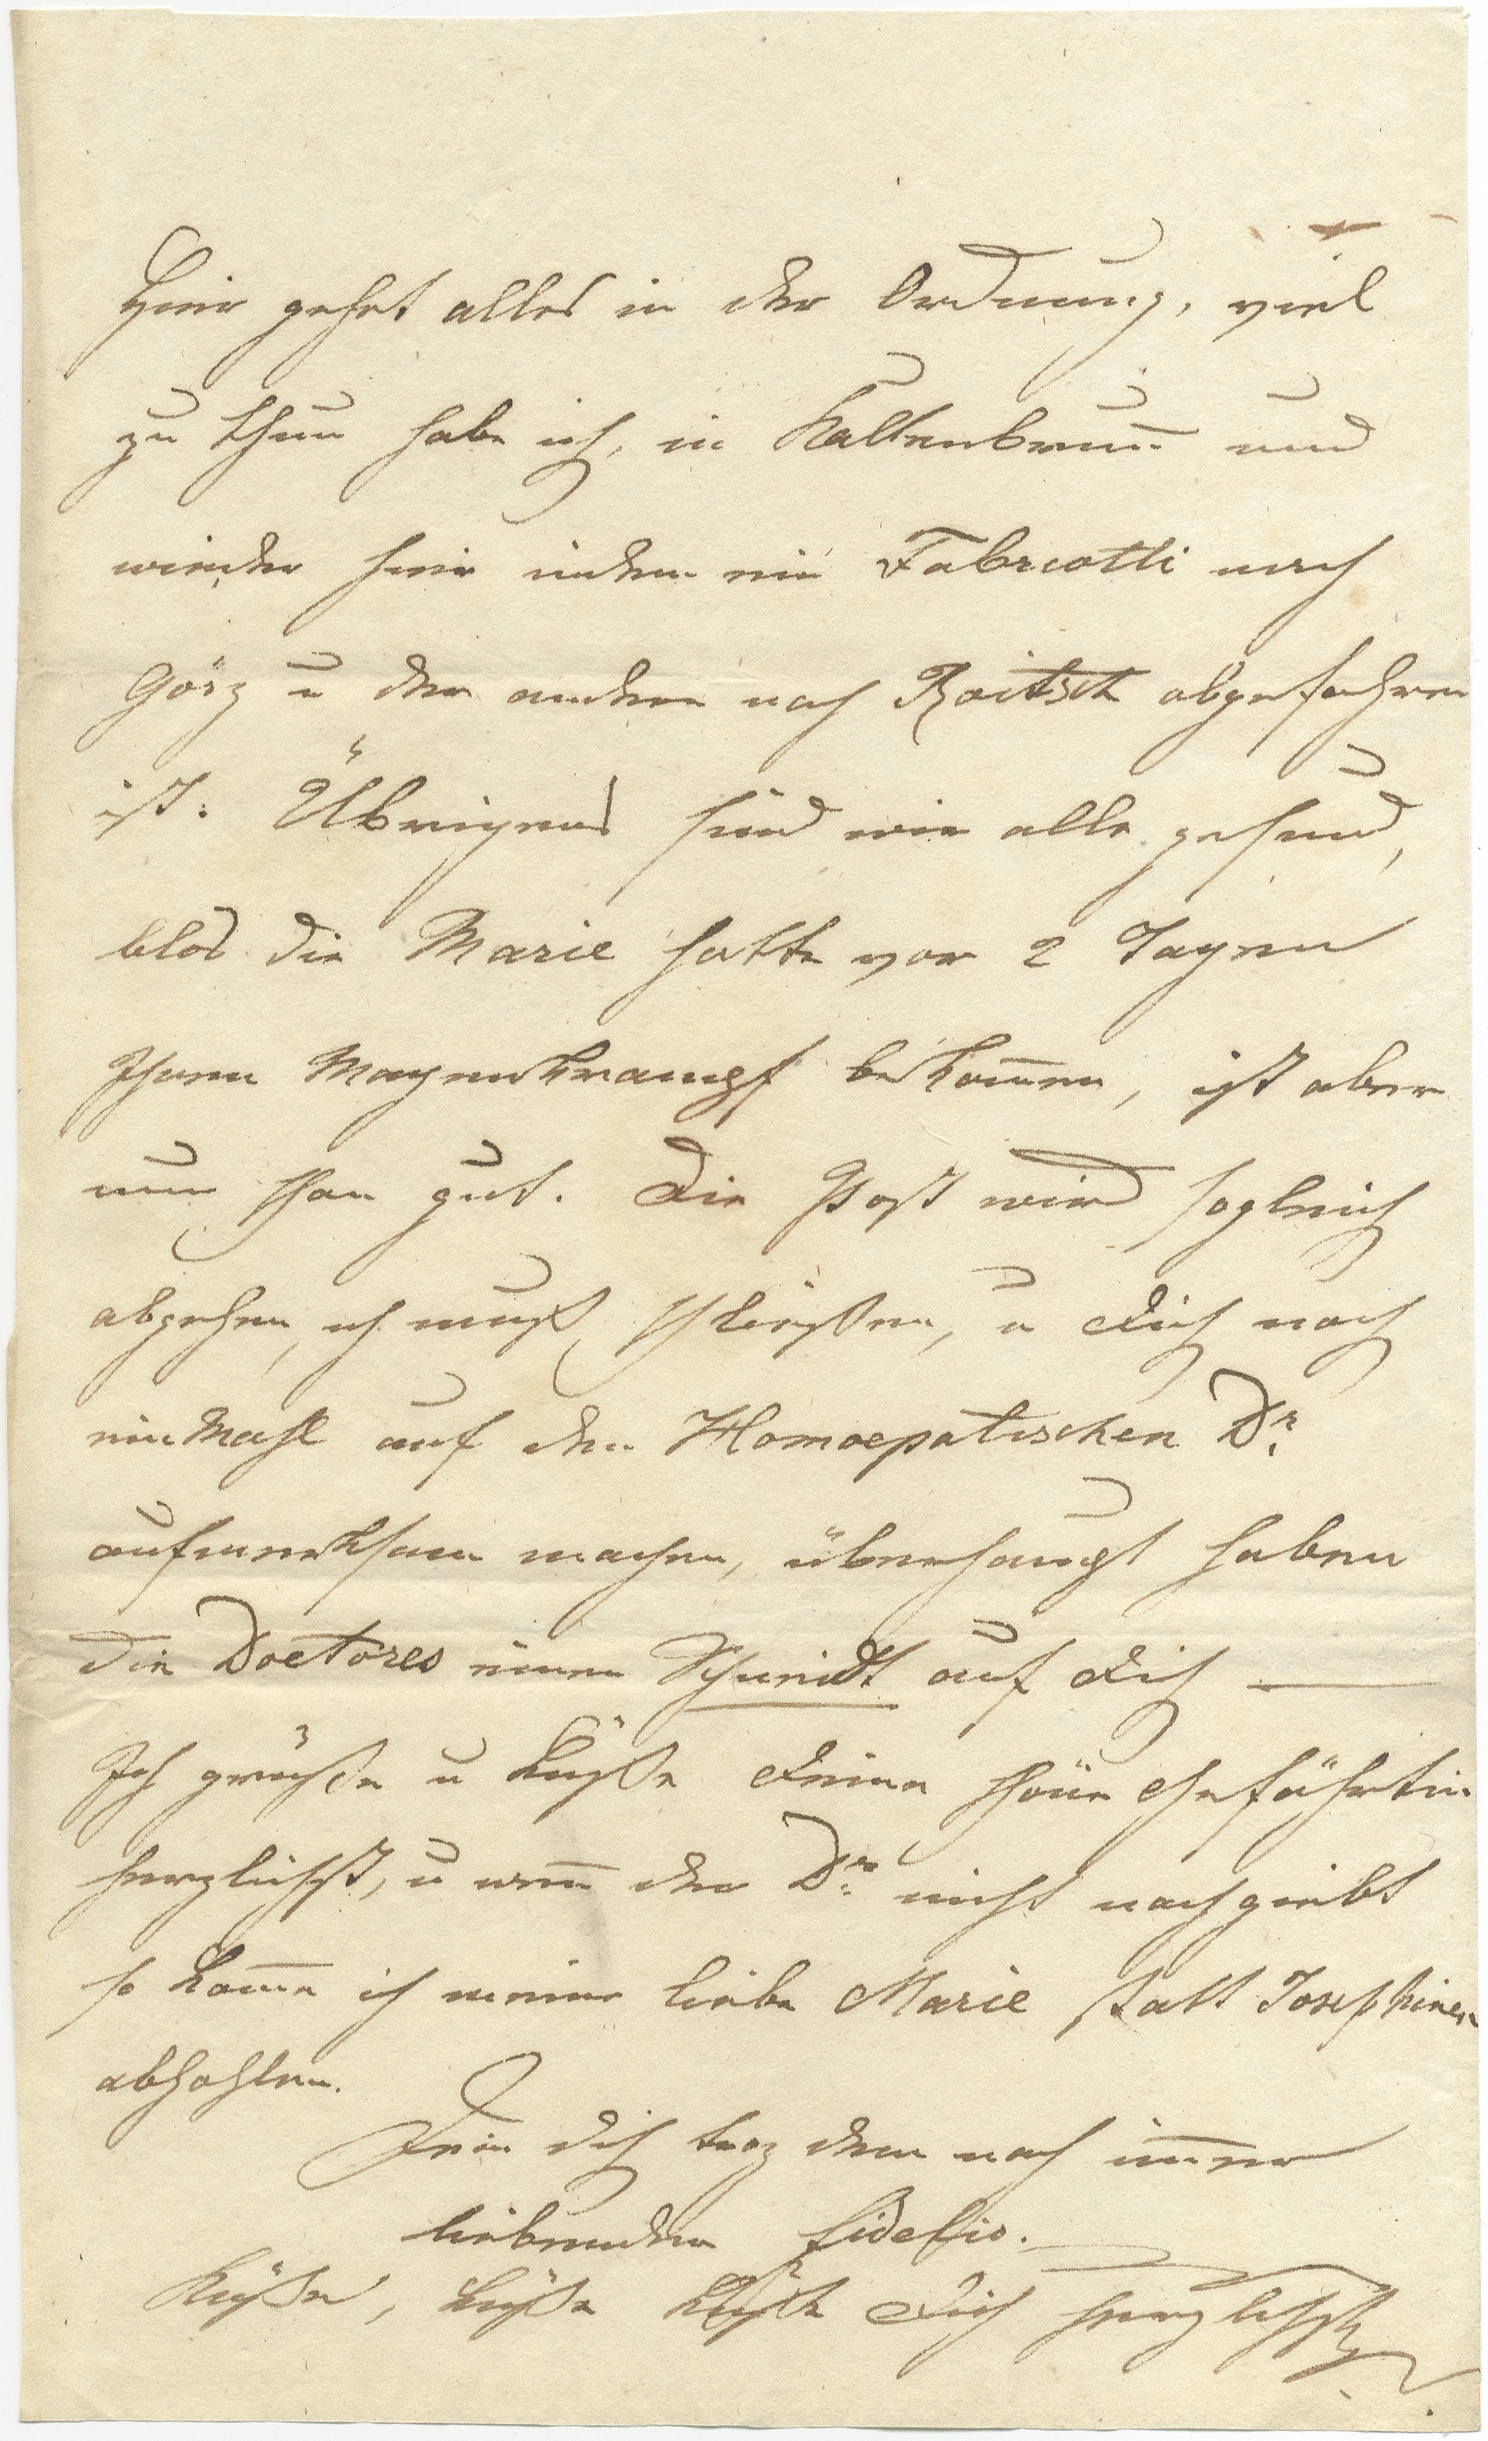 Hier gehet alles in der Ordnung, viel
zu thun habe ich, in Kaltenbrun̄ und
wieder hier indem ein Fabricotti nach
Görz u der andere nach Roitsch abgefahren
ist. Übrigens sind wir alle gesund,
blos die Marie hatte vor 2 Tagen
Ihren Magenkrampf bekom̄en, ist aber
nun schon gut. Die Post wird sogleich
abgehen, ich muß schließen, u Dich noch
ein Mahl auf den Homoepatischen Dr.
aufmerksam machen, überhaupt haben
die Doctores einen auf Dich —
Ich grüße u küße Deine schöne Gefährtin
herzlichst, u wen̄ der Dr. nicht nachgiebt
so kom̄e ich meine liebe Marie statt Josephinen
abhohlen.
Dein dich troz dem noch im̄er
liebender Fidelio.
Küße, küße küße Dich herzlichst